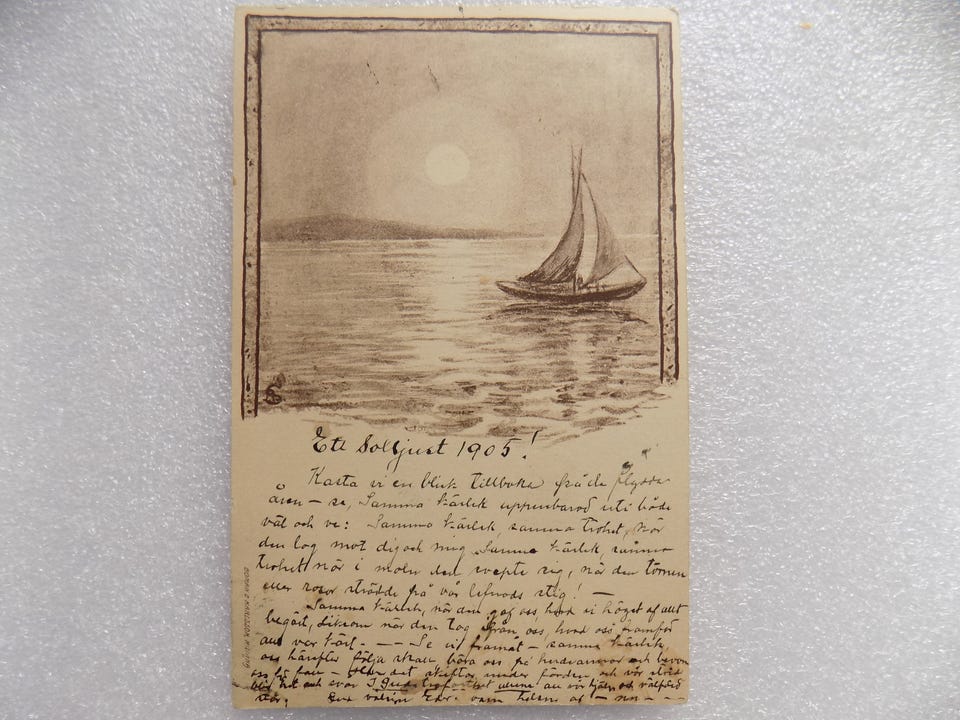 Ett Solljust 1905!
Kasta vi en blick tillbaka på de flydda
åren – se, Samma kärlek uppenbarad uti både
väl och ve: Samma kärlek, samma trohet, när
den log mot dig och mig Samma kärlek, samma
trohet när i moln den svepte sig, när den törnen
eller rosor strödde på vår lefnads stig! –
Samma kärlek, när den gaf oss, hvad vi högst af allt
begärt, liksom när den tog från oss, hvad oss framför
allt var kärt. – – Se vi framåt – samma kärlek
oss härefter följa skall bära oss på
oss så det skiftar under färden och vår
och vår